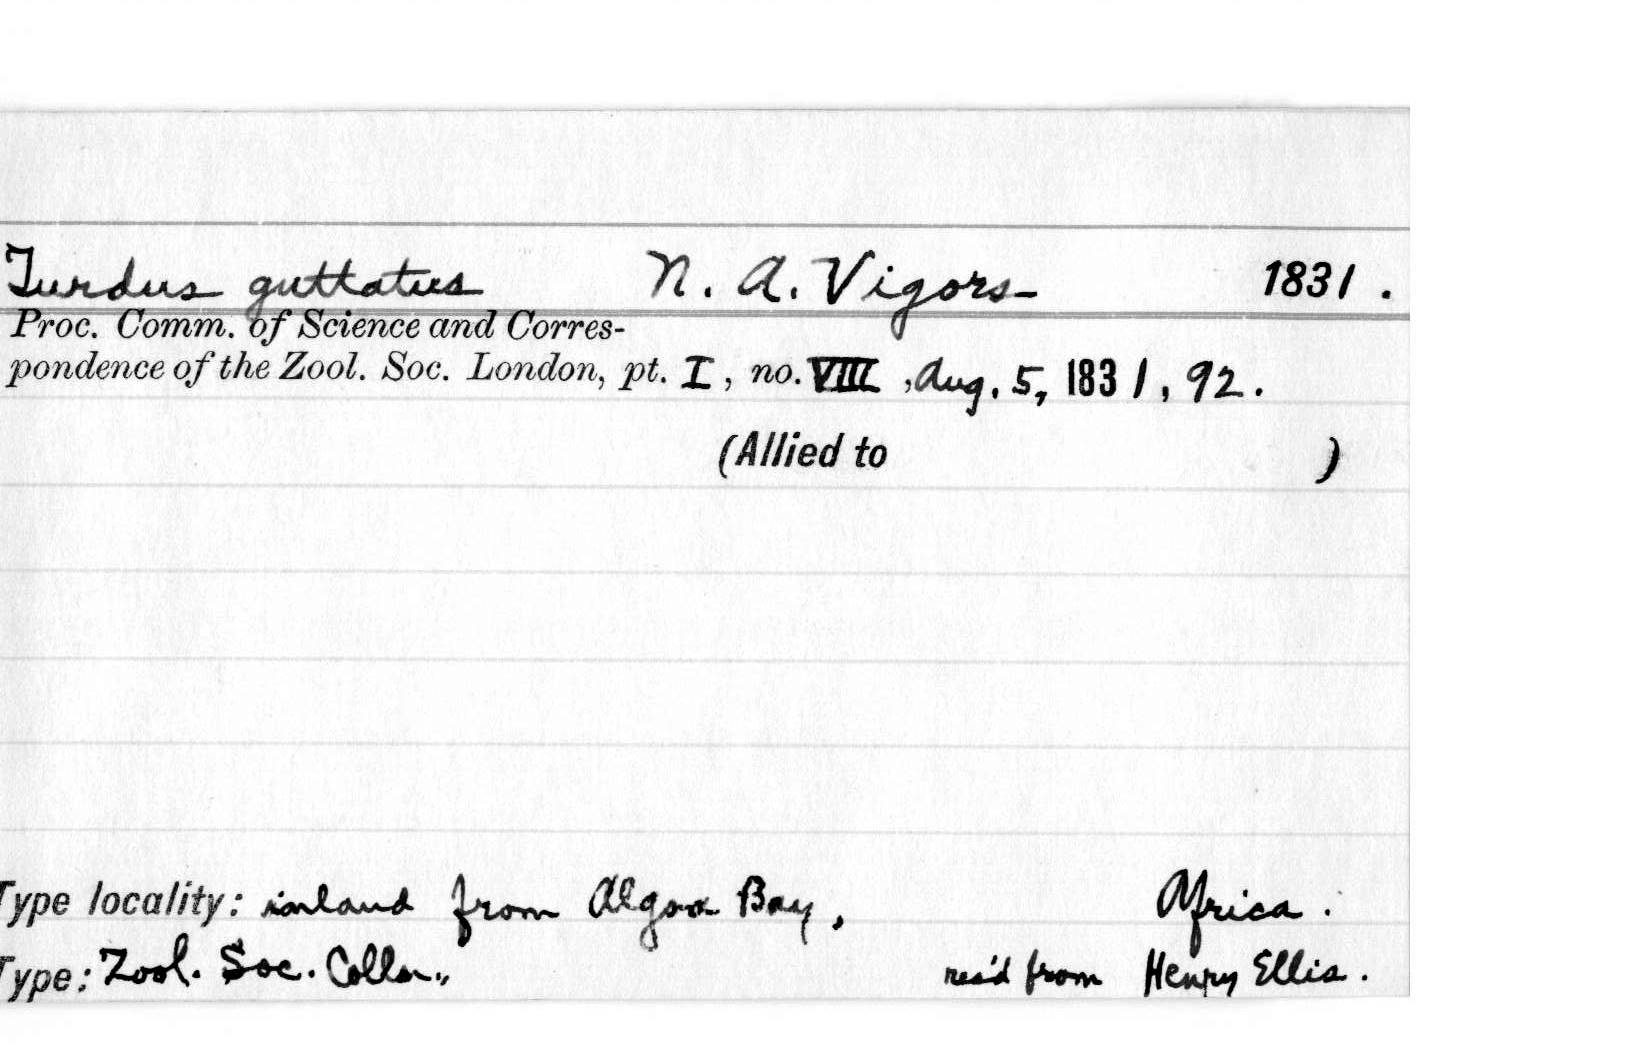 Turdus guttatus N. A. Vigors 1831.
Proc. Comm. of Science and Corres-
pondence of the Zool. Soc. London, pt. I, no. VIII, Aug. 5, 1831, 92.
(Allied to )
Type locality: inland from Algoa Bay, Africa.
Type: Zool. Soc. Colln., rec'd from Henry Ellis.